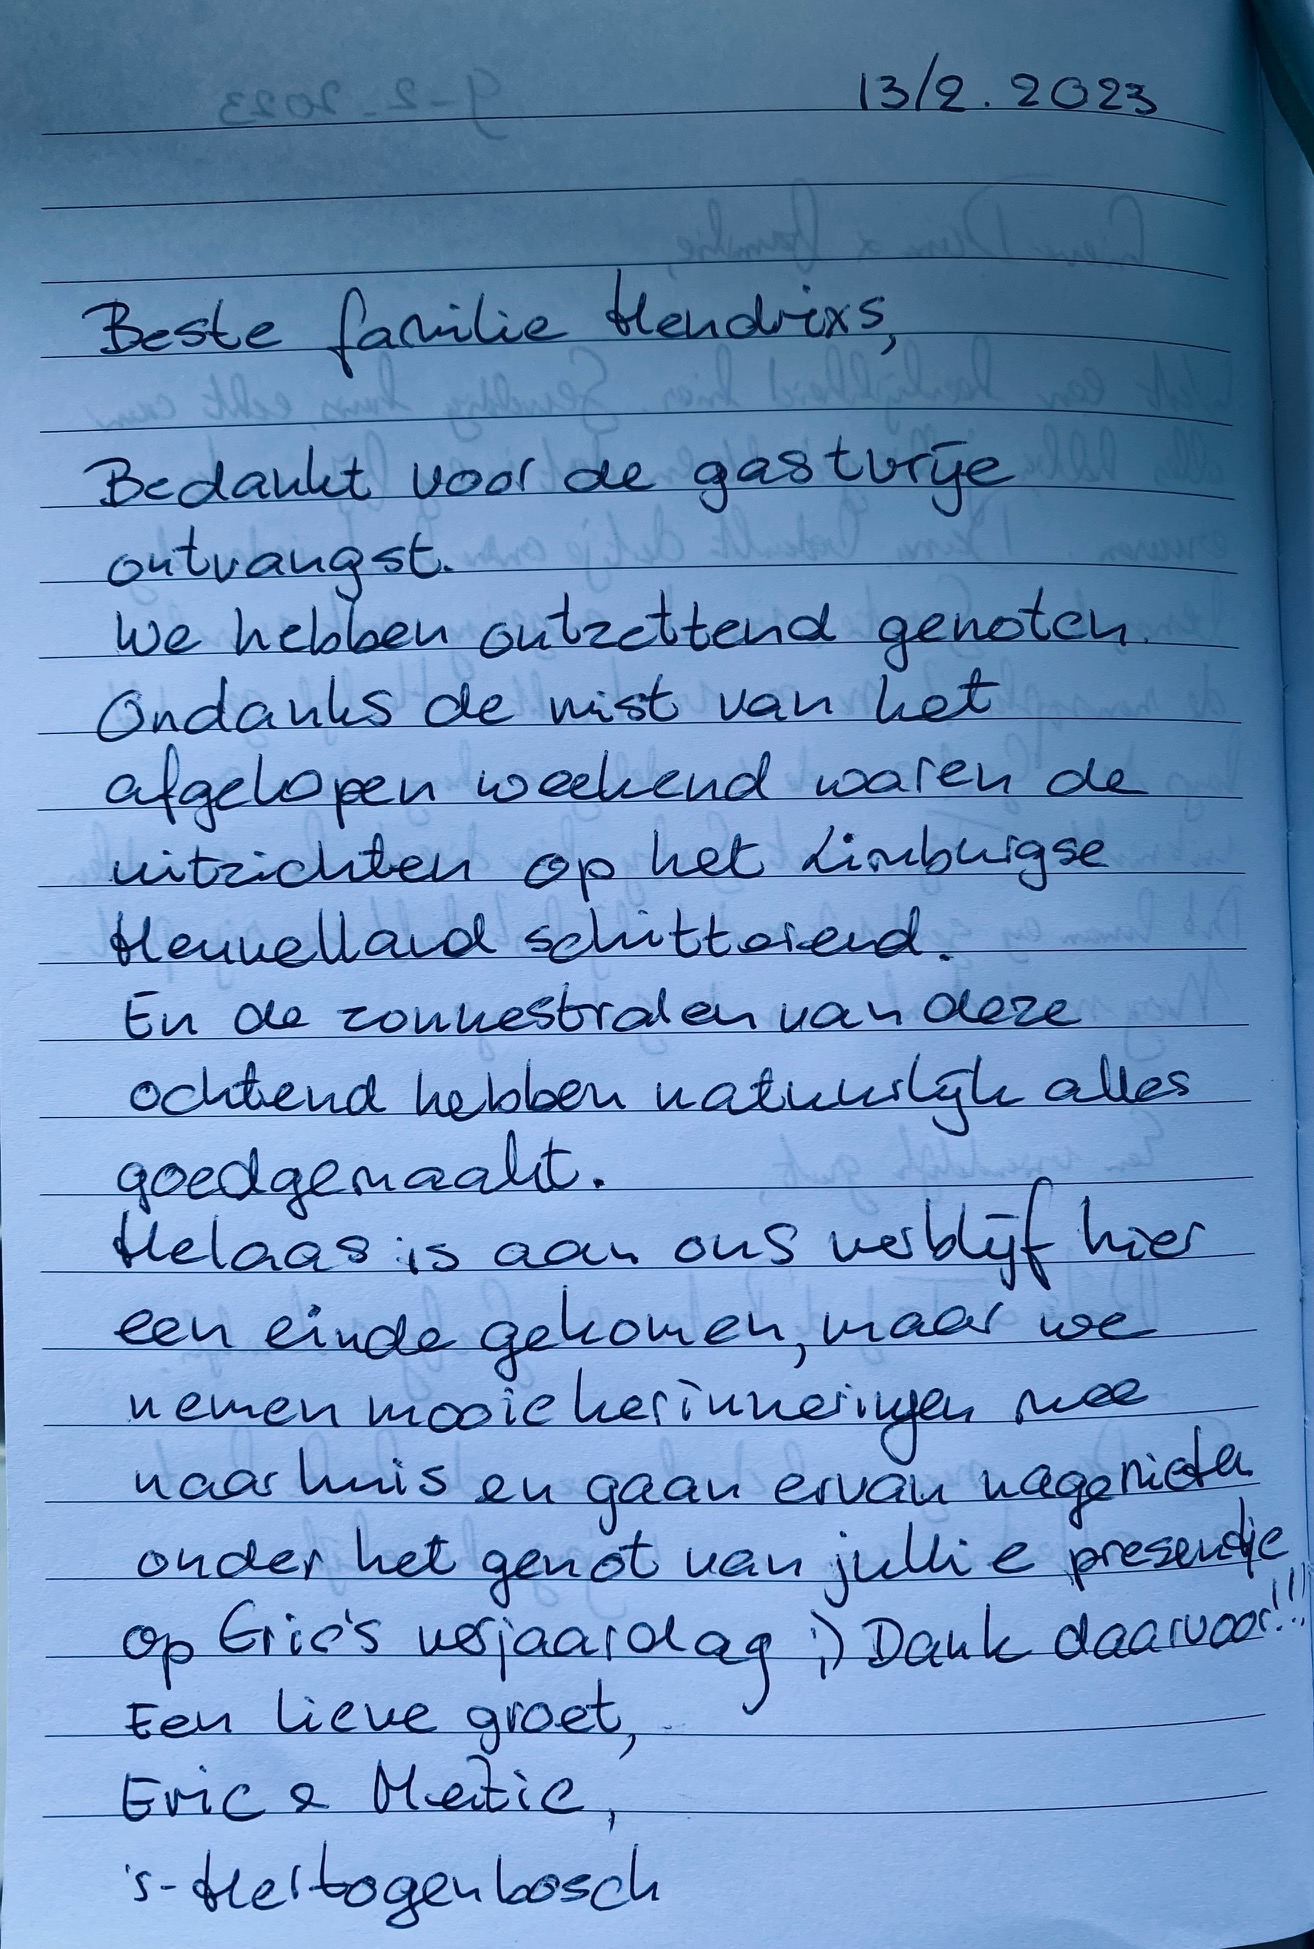 13/2.2023
Beste familie Hendrixs,
Bedankt voor de gastvrije
ontvangst.
We hebben ontzettend genoten.
Ondanks de mist van het
afgelopen weekend waren de
uitzichten op het Limburgse
Heuvelland schitterend.
En de zonnestralen van deze
ochtend hebben natuurlijk alles
goedgemaakt.
Helaas is aan ons verblijf hier
een einde gekomen, maar we
nemen mooie herinneringen mee
naar huis en gaan ervan nagenieten
onder het genot van jullie presentje
op Eric's verjaardag ;) Dank daarvoor!!!
Een lieve groet,
Eric &
's-Hertogenbosch